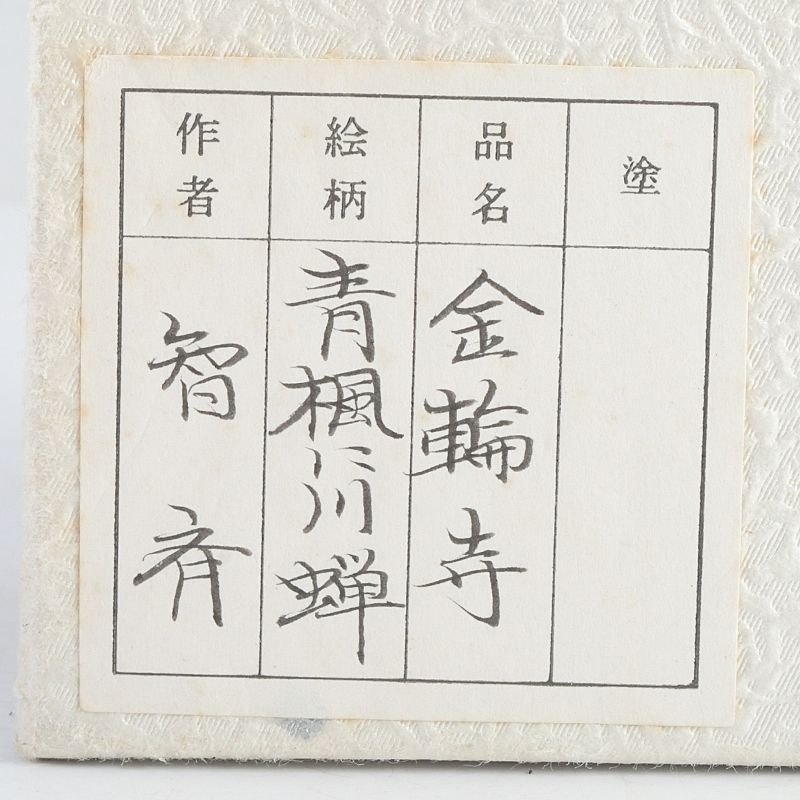 塗
品名
金輪寺
絵柄
青楓に川蝉
作者
智斉